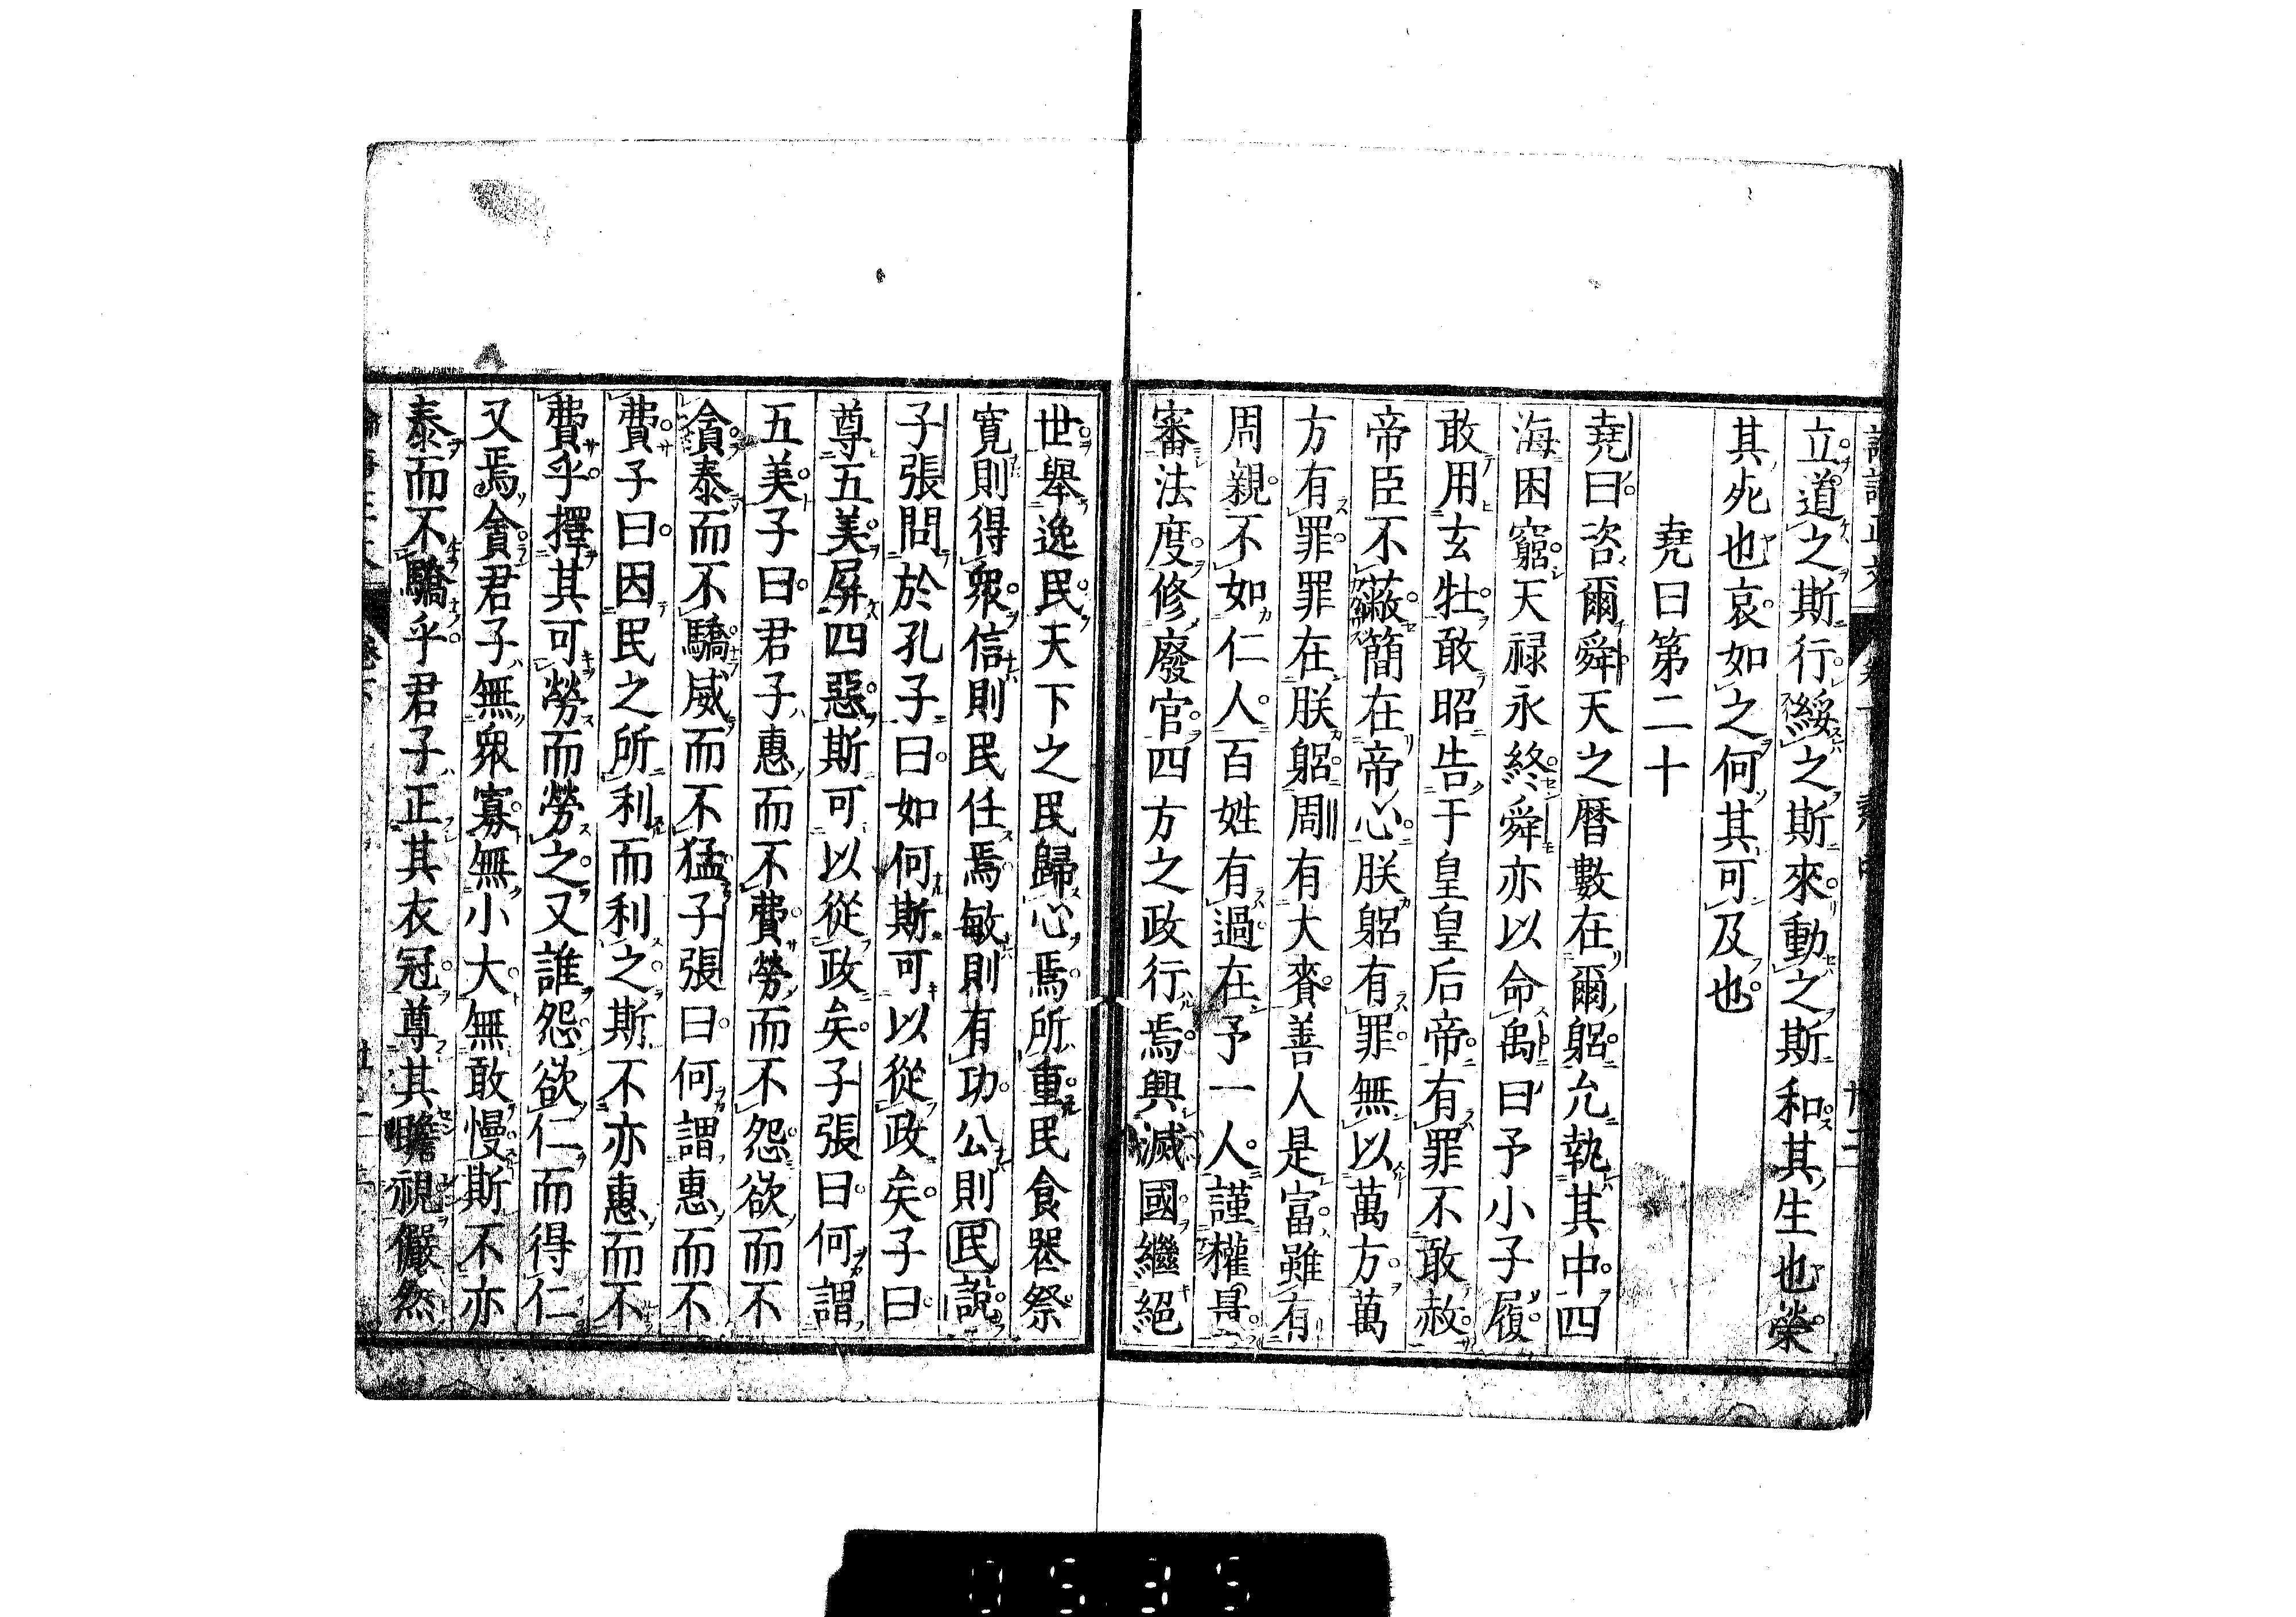 立道之斯行綏之斯來動之斯和其生也榮
其死也哀如之何其可及也
堯曰第二十
堯曰咨爾舜天之曆數在爾躬允執其中四
海困窮天禄永終舜亦以命禹曰予小子履
敢用玄牡敢昭告于皇皇后帝有罪不敢赦
帝臣不蔽簡在帝心朕躬有罪無以萬方萬
方有罪罪在朕躬周有大賚善人是富雖有
周親不如仁人百姓有過在予一人謹權量
審法度修廢官四方之政行焉興滅國繼絕
世舉逸民天下之民歸心焉所重民食喪祭
寬則得衆信則民任焉敏則有功公則民説
子張問於孔子曰如何斯可以從政矣子曰
尊五美屏四惡斯可以從政矣子張曰何謂
五美子曰君子惠而不費勞而不怨欲而不
貪泰而不驕威而不猛子張曰何謂惠而不
費子曰因民之所利而利之斯不亦惠而不
費乎擇其可勞而勞之又誰怨欲仁而得仁
又焉貪君子無衆寡無小大無敢慢斯不亦
泰而不驕乎君子正其衣冠尊其瞻視儼然